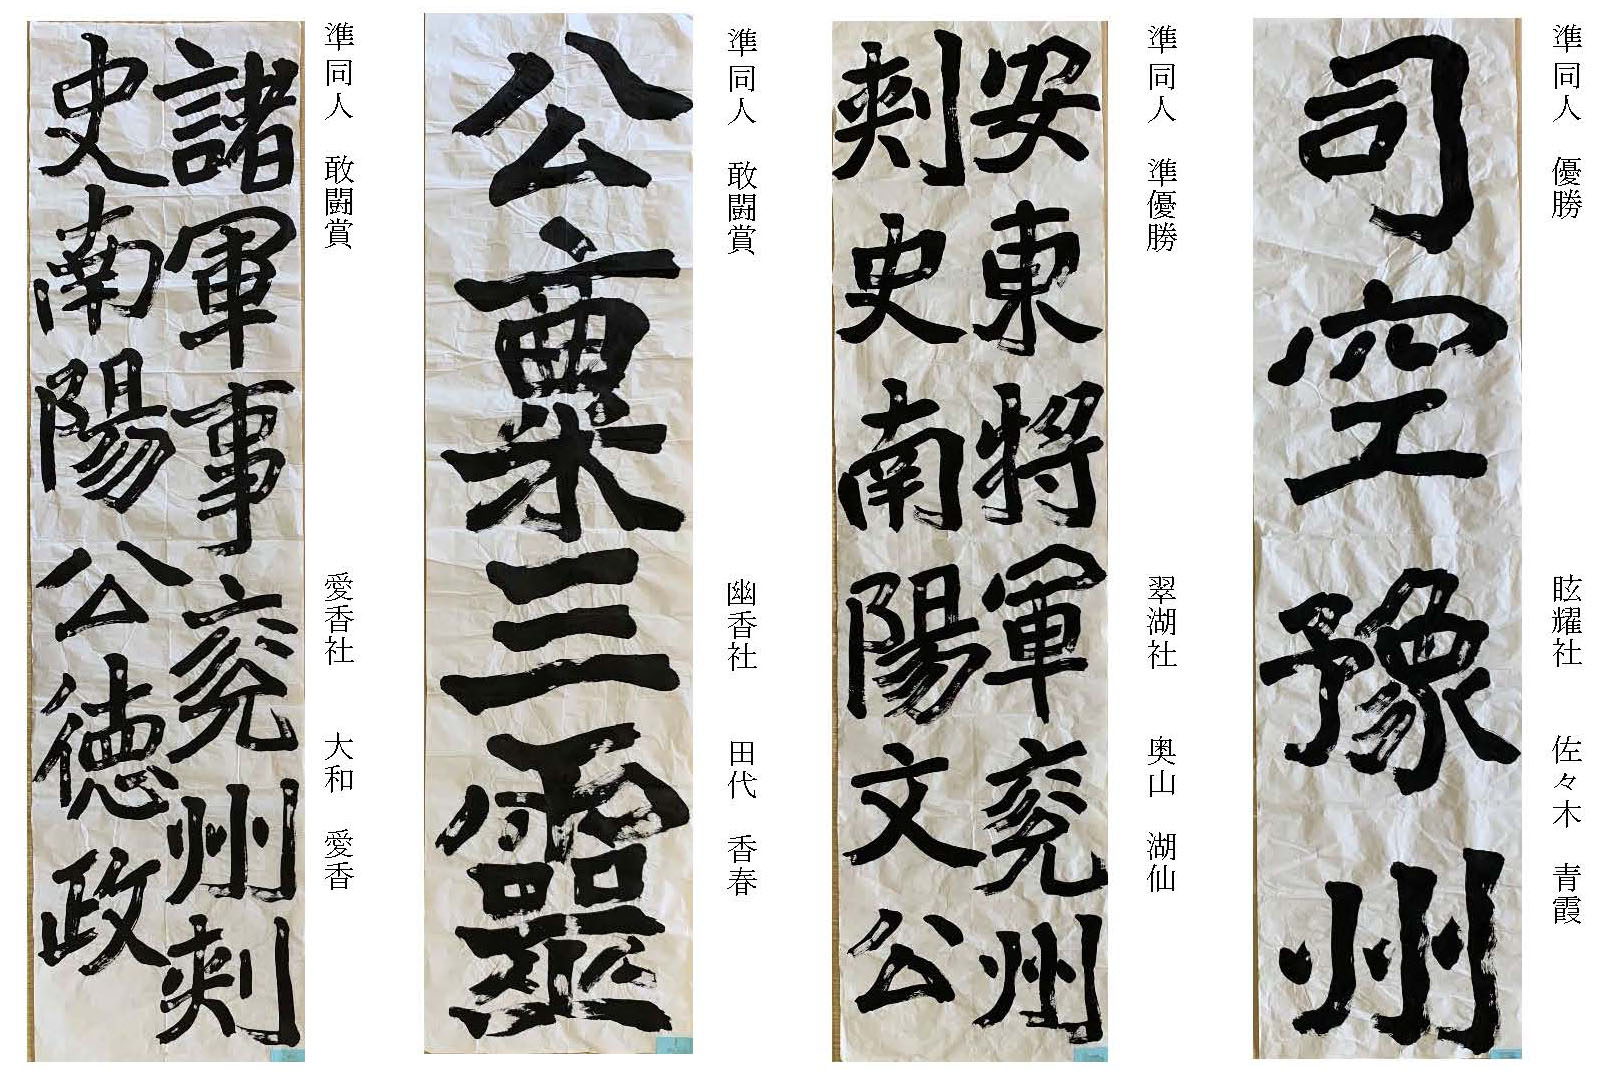 準同人 優勝 眩耀社 佐々木 青霞
司空豫州
準同人 準優勝 翠湖社 奥山 湖仙
安東将軍兖州
刺史南陽文公
準同人 敢闘賞 幽香社 田代 香春
公稟三靈
準同人 敢闘賞 愛香社 大和 愛香
諸軍事兖州刺
史南陽公徳政